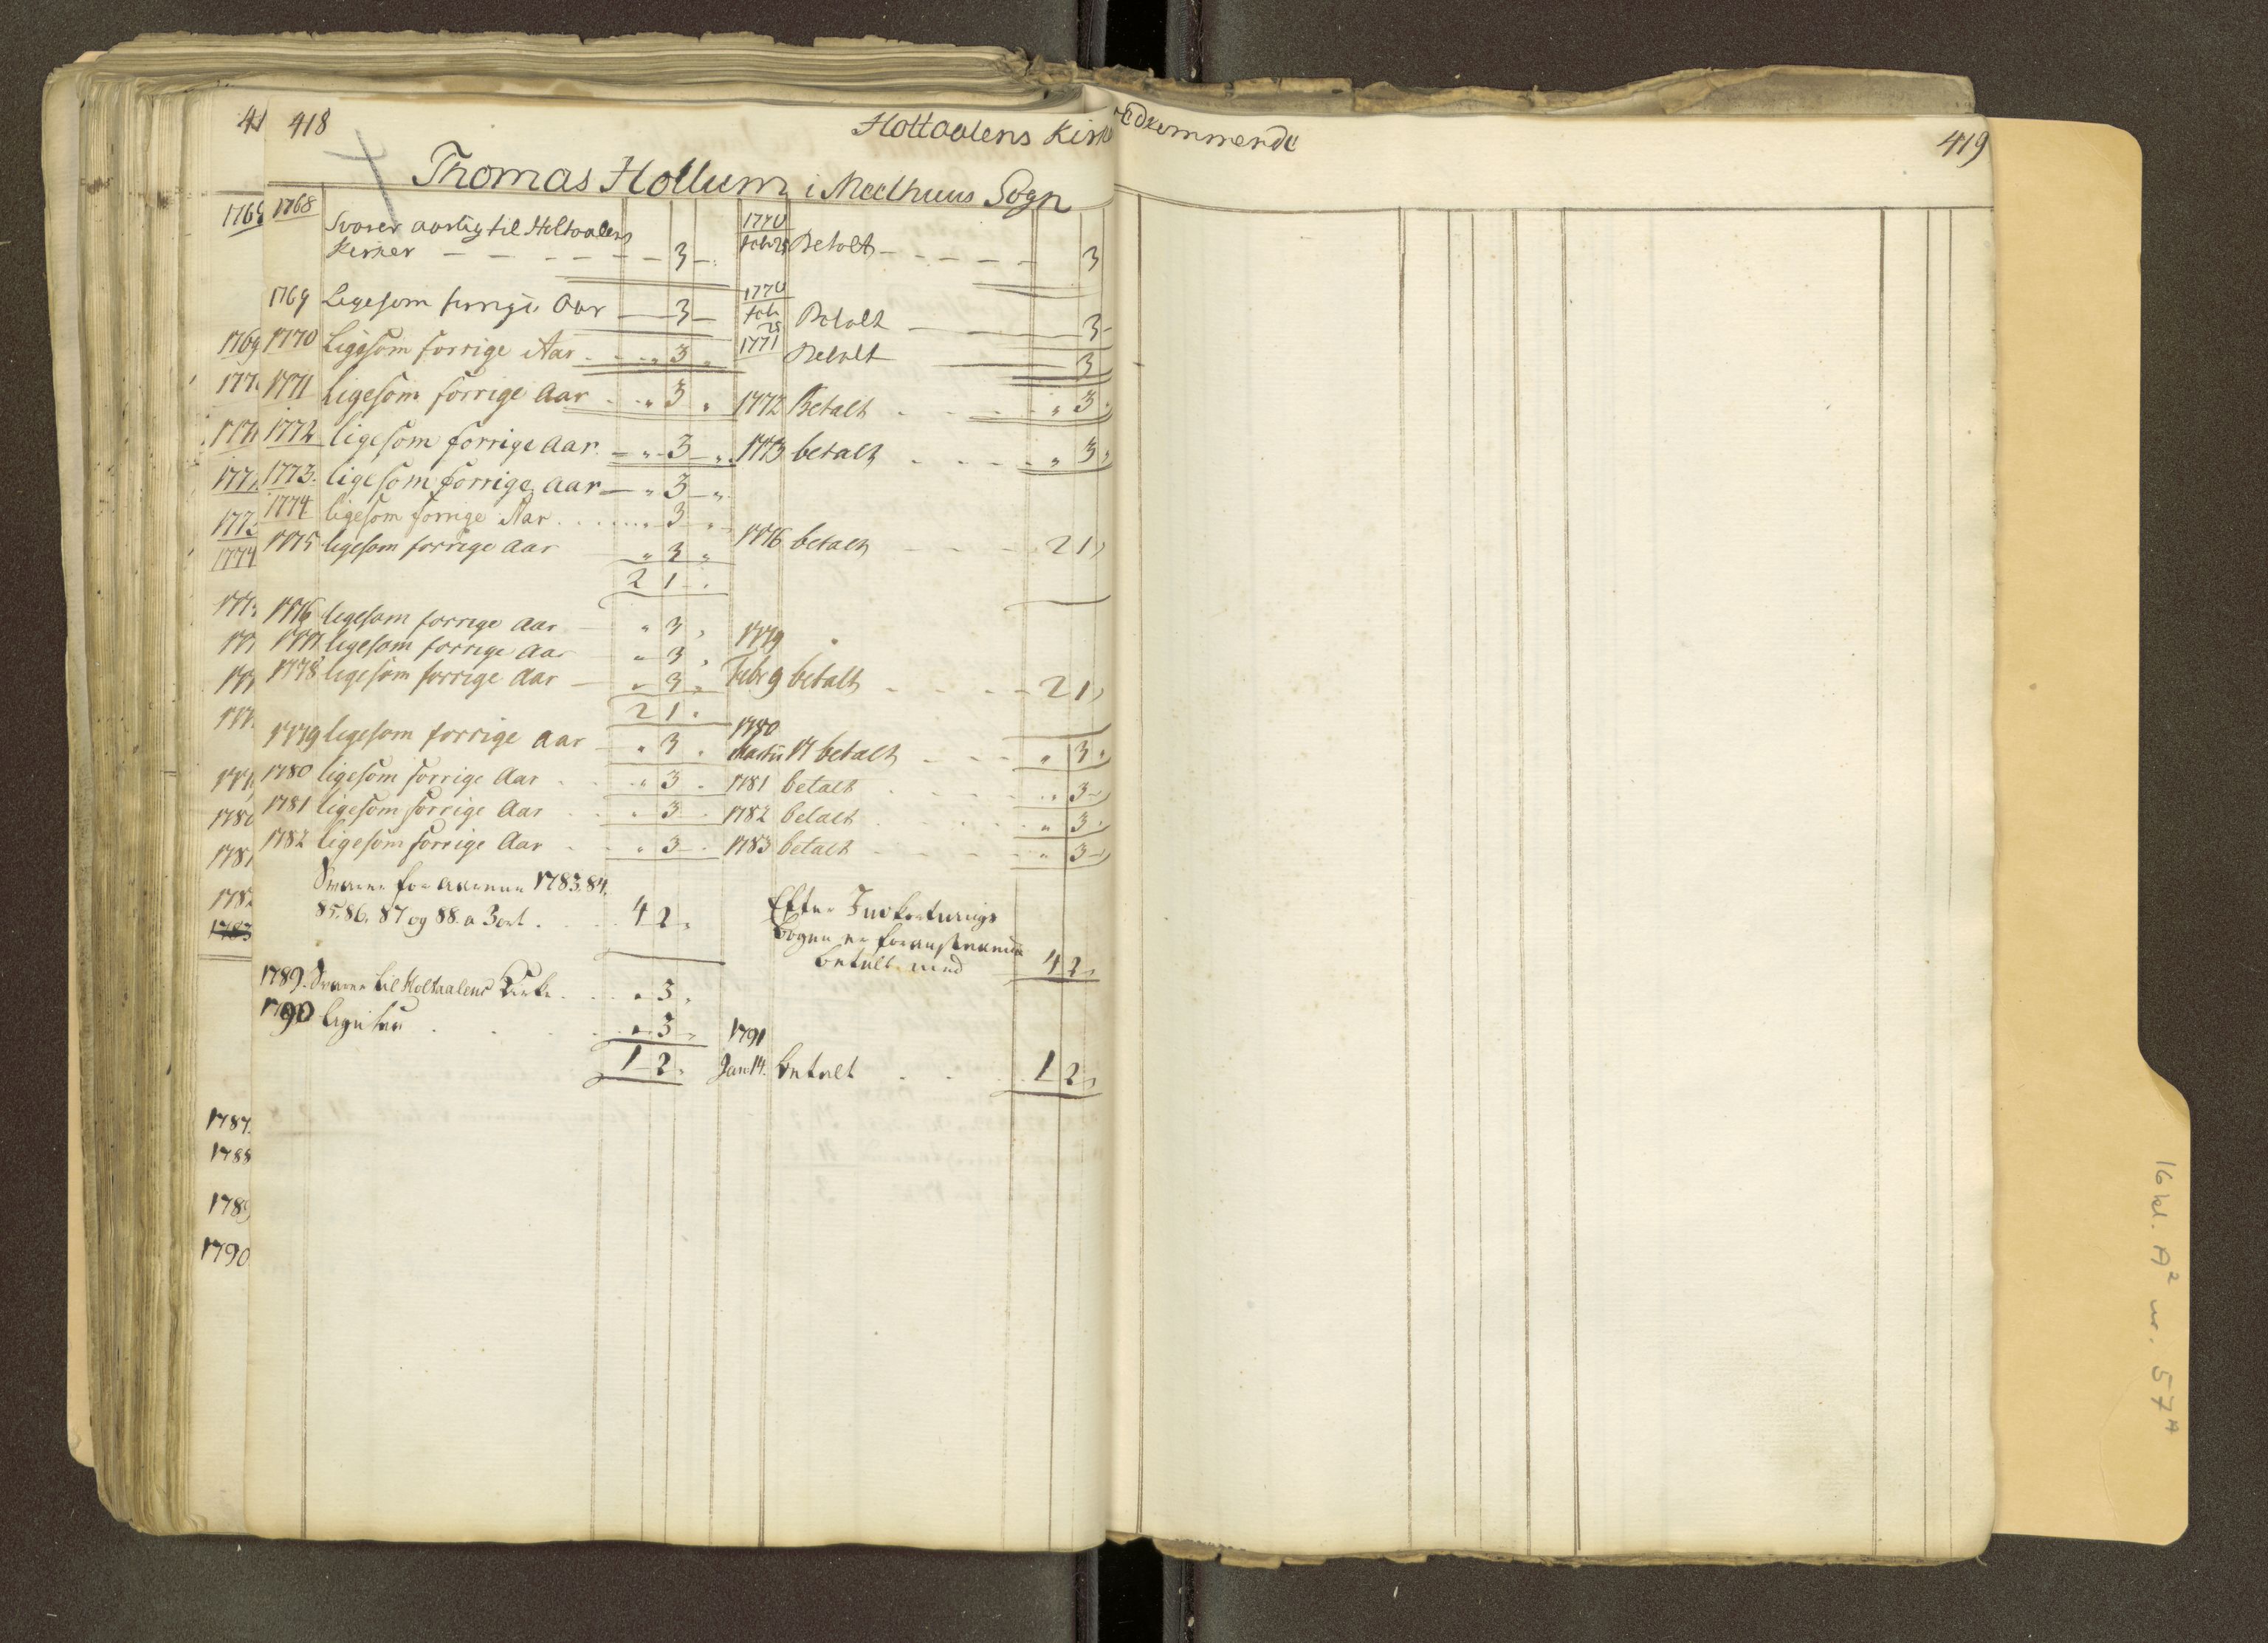 418
Holtaalens Kirke
vedkommende
419
Thomas Hollum i Meelhuus Sogn
1768 Svarer aarlig til Holtaalens
Kirker - - - - - - 3 -
1770
Feb 25 Betalt - - - - - 3
1769 Ligesom forrige Aar - 3 -
1770
Feb 25 Betalt - 3 -
1770 Ligesom forrige Aar . . „ 3 „
1771 Betalt - 3
1771 Ligesom forrige Aar . . „ 3 „ 1772 Betalt . . . . „ 3 „
1772 ligesom forrige Aar. - „ 3 „ 1773 betalt . . . . „ 3 „
1773. ligesom forrige aar - „ 3 „
1774 ligesom forrige Aar . . . . „ 3 „
1775 ligesom forrige Aar „ 3 „ 1776 betalt - - - 2 1 „
2 1 „
1776 ligesom forrige Aar - „ 3 „
1777 ligesom forrige Aar „ 3 „ 1779
1778 ligesom forrige Aar - „ 3 „ Febr 9 betalt . . . . 2 1 „
2 1 „
1779 ligesom forrige Aar - „ 3 „ 1780
Martii 14 betalt . . . „ 3 „
1780 ligesom forrige Aar . . „ 3 „ 1781 betalt . . . . „ 3 „
1781 ligesom forrige Aar . . „ 3 „ 1782 betalt . . . . „ 3 „
1782 ligesom forrige Aar . . „ 3 „ 1783 betalt . . . . „ 3 „
Svarer for Aarene 1783. 84.
85. 86. 87 og 88. a 3 ort . . . 4 2 „
Efter
Bogen er foranstaaende
betalt med 4 2 „
1789. Svarer til Holtaalens Kirke . . . „ 3 „
1790 ligesaa . . . . „ 3 „
1 2 „
1791
Jan. 14. betalt . . . 1 2 „
41
1769
1773
1774
1782
1783
1787.
1788
1789
1790
16 kl. A² nr. 57ᴬ